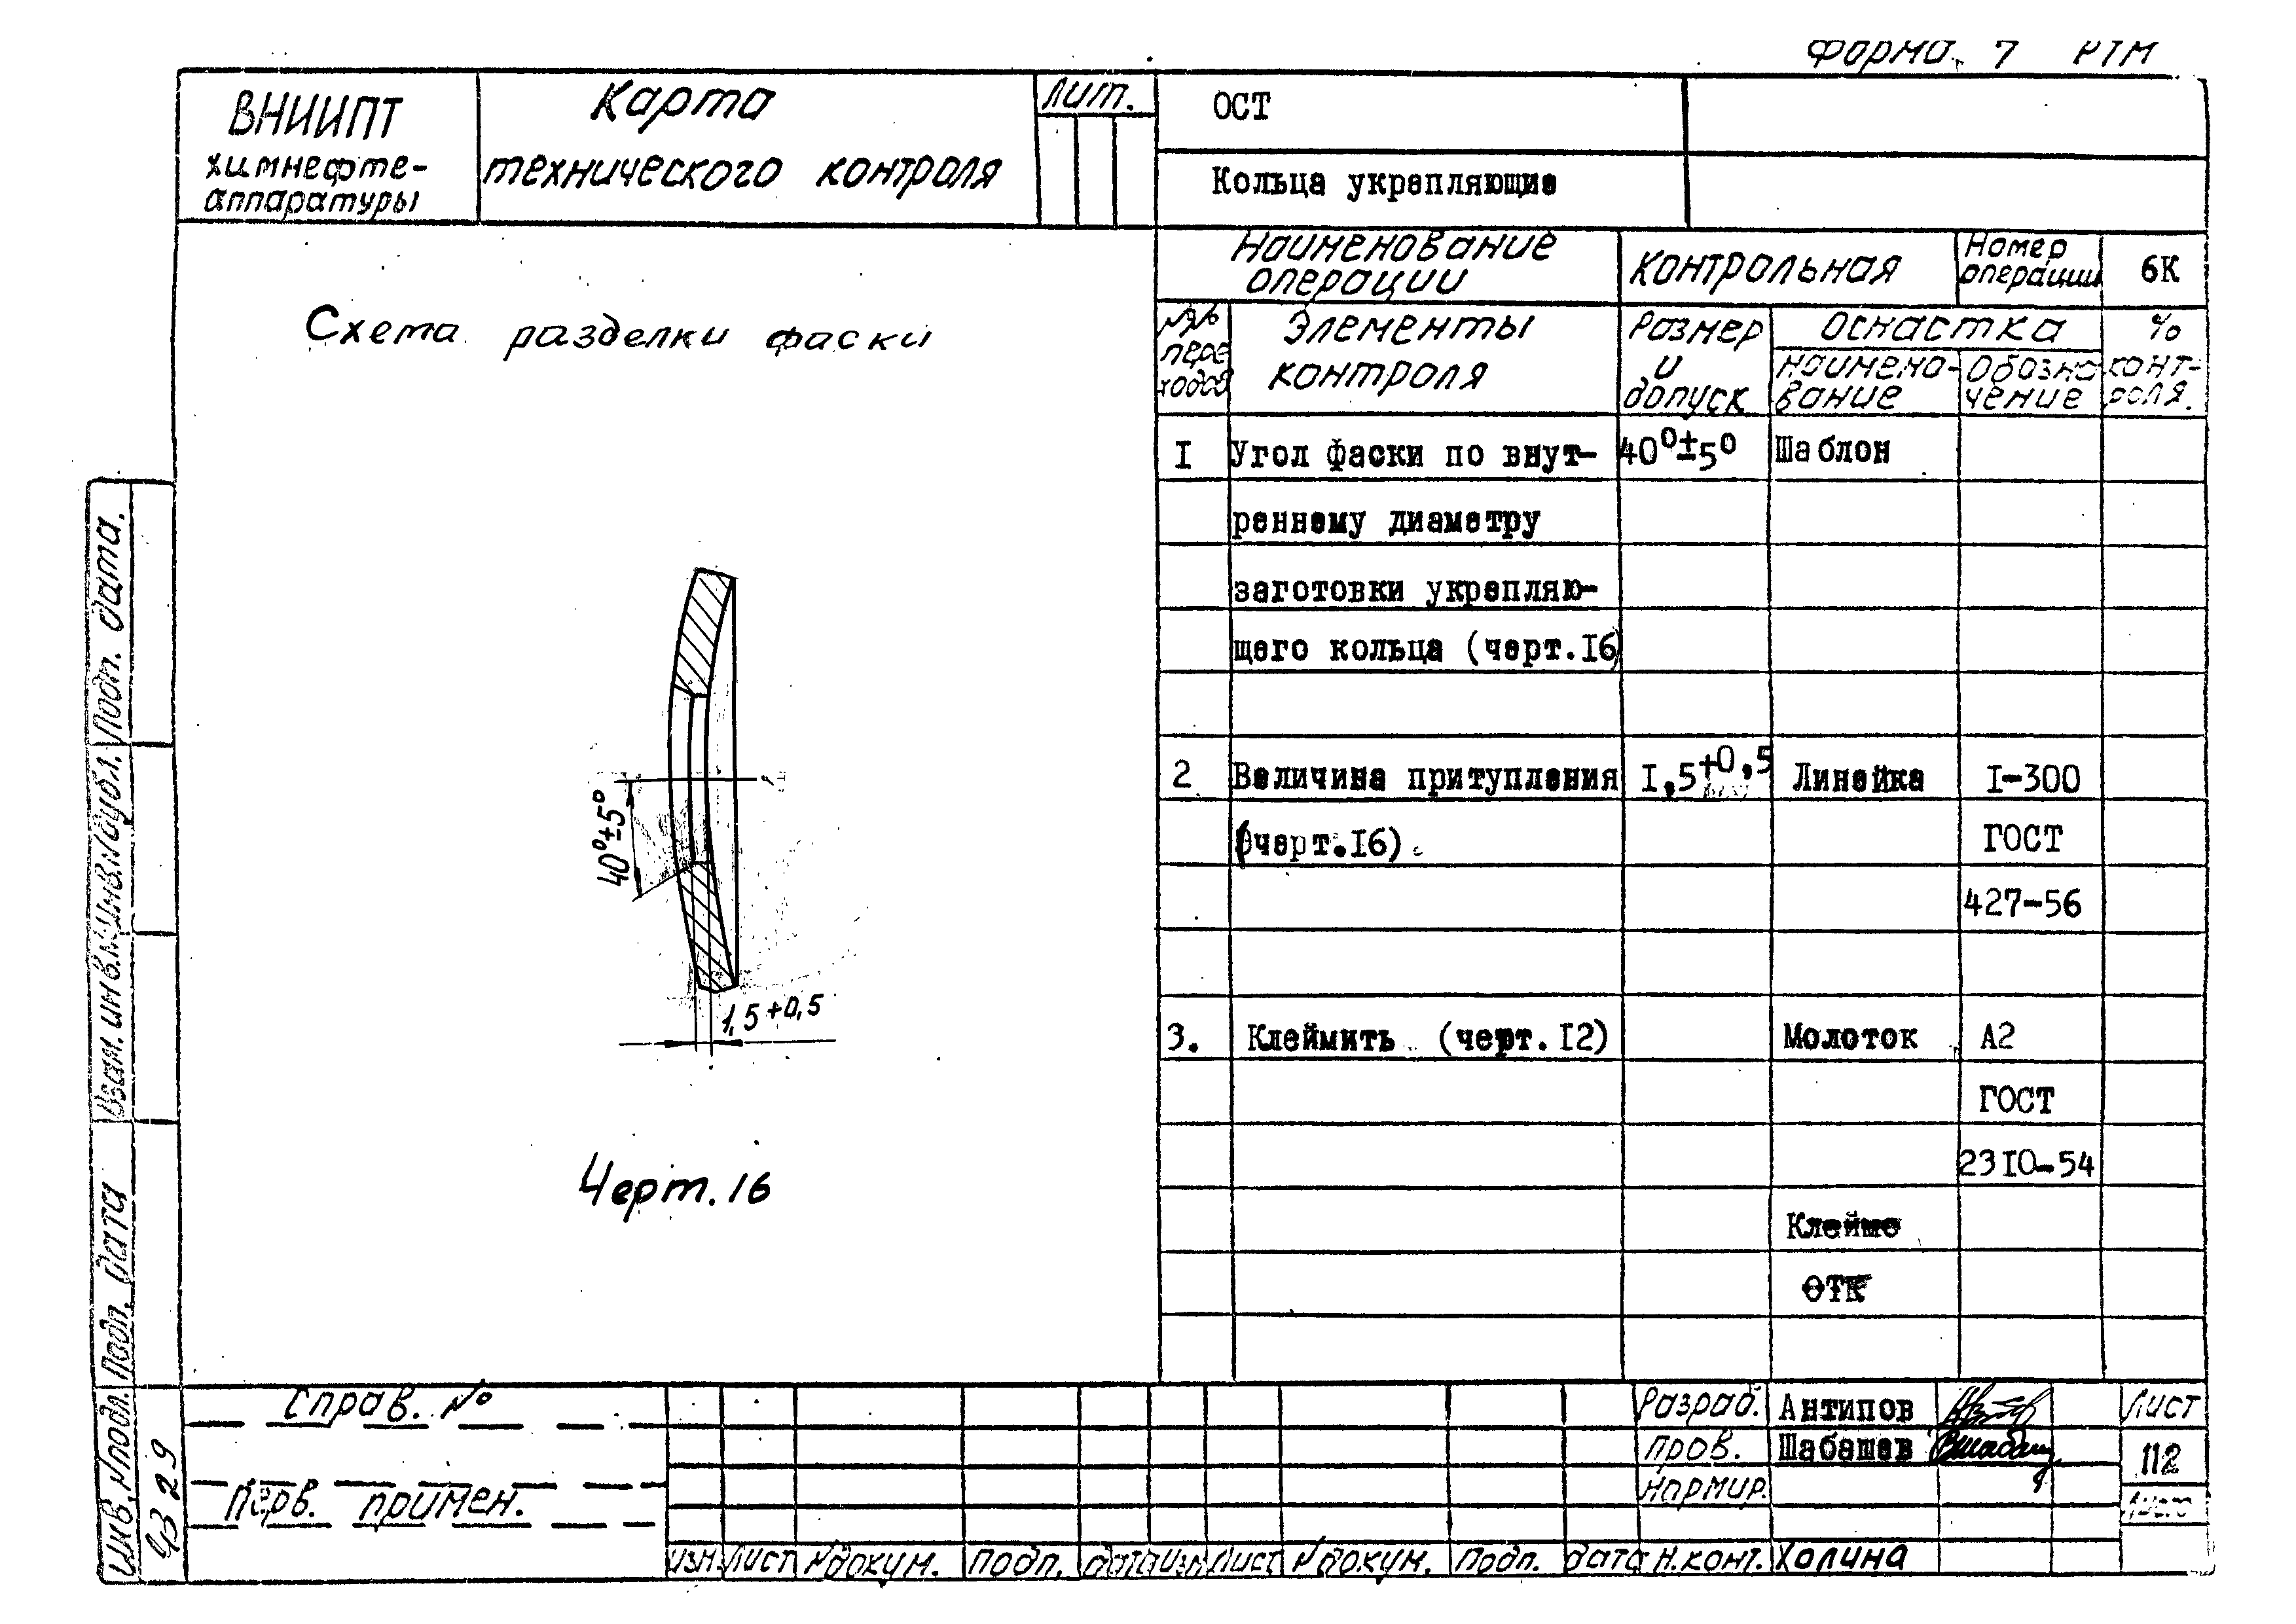 Форма 7 РТМ
ВНИИПТ
химнефте-
аппаратуры
Карта
технического контроля
Лит.
ОСТ
Кольца укрепляющие
Наименование
операции
Контрольная
Номер
операции
6К
№№
пере
ходов
Элементы
контроля
Размер
и
допуск
Оснастка
наимено-
вание
Обозна
чение
%
конт-
роля.
Схема разделки фаски
40°±5°
1,5+0,5
Черт. 16
I Угол фаски по внут- 40°±5° Шаблон
реннему диаметру
заготовки укрепляю-
щего кольца (черт.I6)
2 Величина притупления I,5+0,5 Линейка I-300
(черт.I6) ГОСТ
427-56
3. Клеймить (черт.I2) Молоток А2
ГОСТ
23I0-54
Клеймо
ОТК
Подп. дата.
Инв.№дубл.
Взам.инв.№
Подп. дата
Инв.№подл.
4329
Справ. №
Перв. примен.
Изм. Лист № докум. Подп. Дата Изм Лист № докум. Подп. Дата
Разраб. Антипов
Пров. Шабашев
Нормир.
Н.конт. Холина
Лист
112
Лист